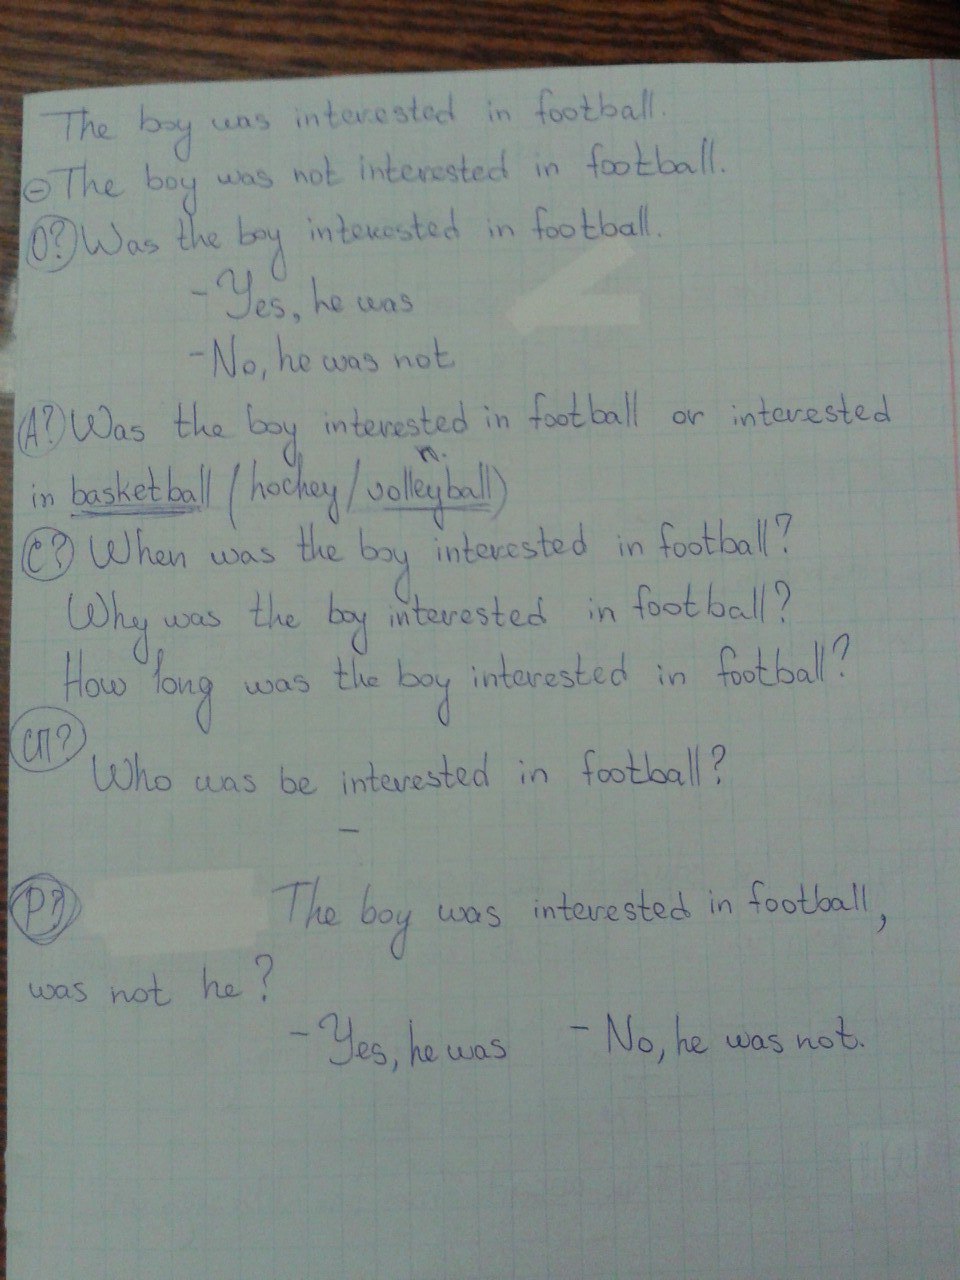 The boy was interested in football.
⊖ The boy was not interested in football.
О? Was the boy interested in football.
- Yes, he was
- No, he was not
А? Was the boy interested in football or interested
n.
in basketball (hockey/volleyball)
С? When was the boy interested in football?
Why was the boy interested in football?
How long was the boy interested in football?
СП?
Who was be interested in football?
-
Р? The boy was interested in football,
was not he?
- Yes, he was - No, he was not.